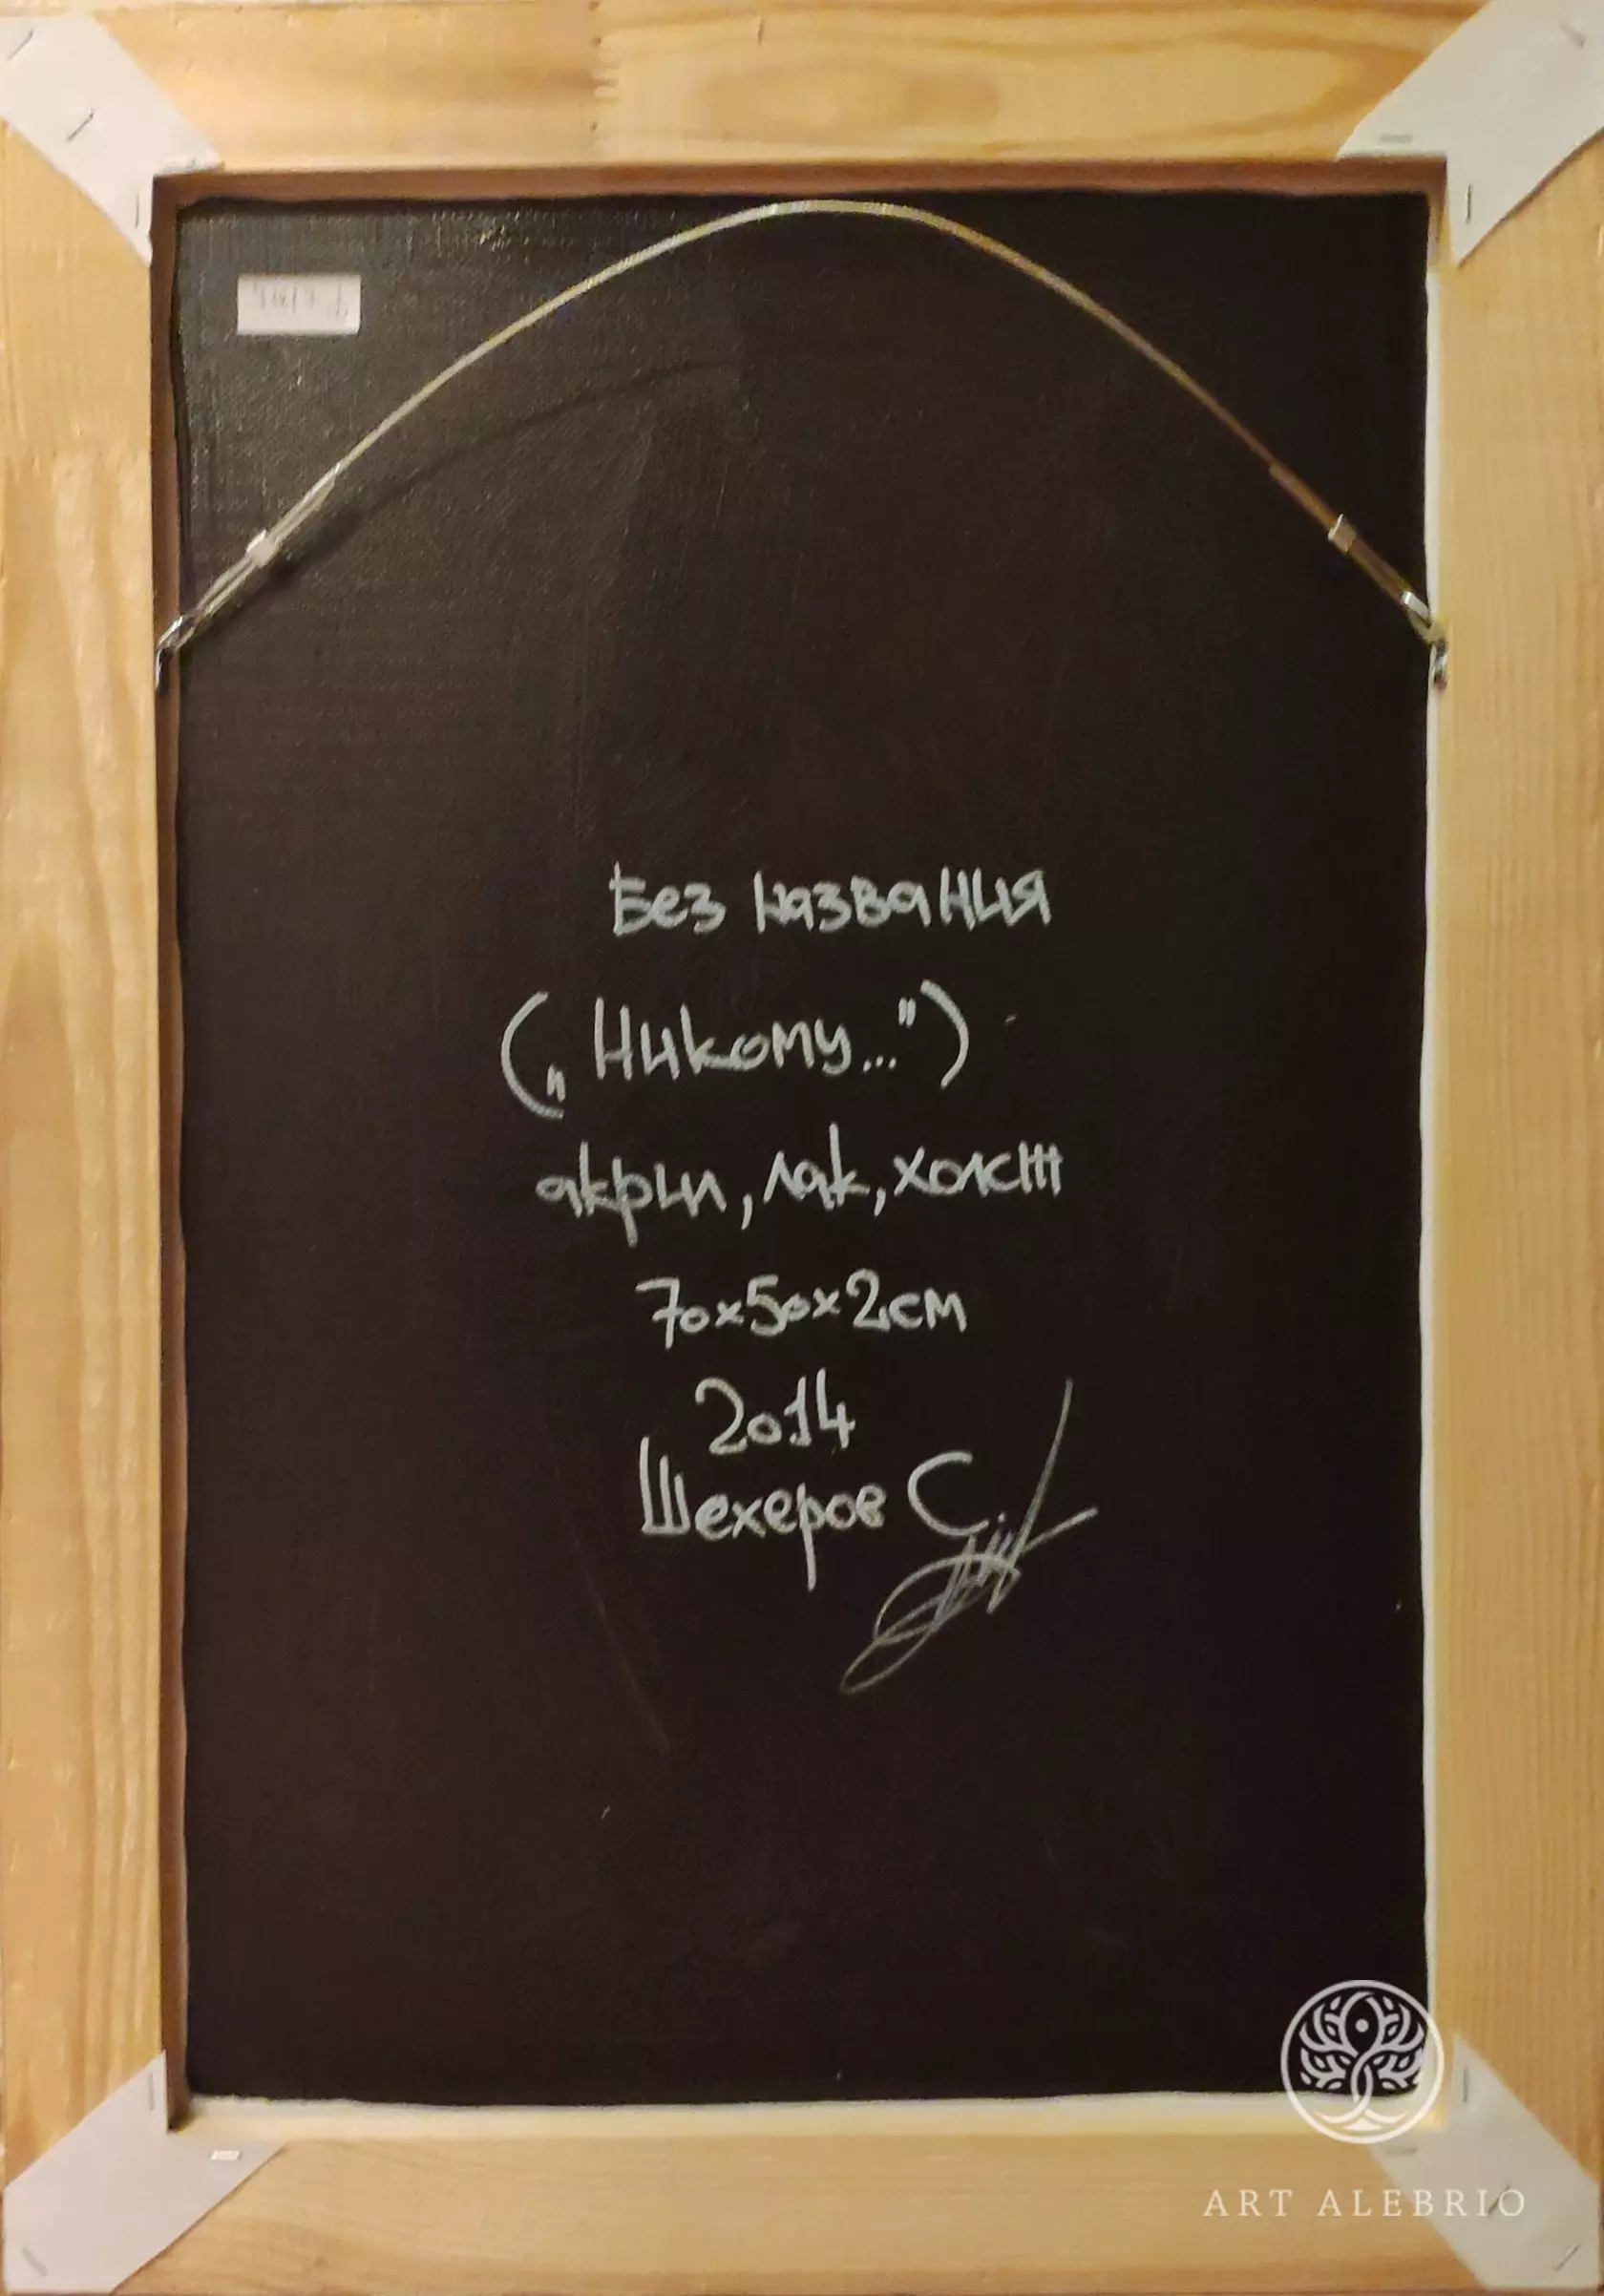 Без названия
(„Никому...")
акрил, лак, холст
70x50x2см
2014
Шехеров С.
ART ALEBRIO